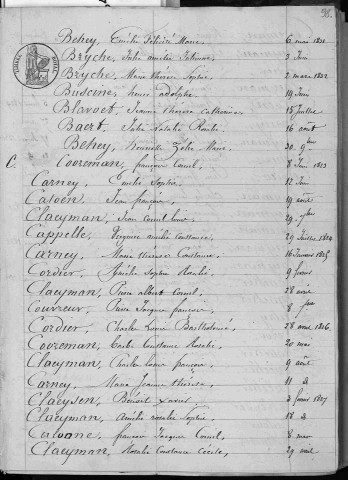 Behey, Emilie Félicité Marie 6 mai 1821
Bryche, Julie Amélie Fabienne 3 Juin
Bryche, Marie thérèse Sophie 2 mars 1822
Buscine, henri adolphe 19 Juin
Blavoet, Jeanne thérèse Catherine 15 Juillet
Baert, Julie Natalie 16 août
Behey, Zélie Marie 20 9bre
C Cooreman, françois Cornil 8 1823
Carney, Emilie Sophie 12 Juin
Calven, Jean françois 19 août
Claeyman, Jean Cornil 29 7bre
Cappelle, amélie Constance 29 Juillet 1824
Carney, Marie thérèse Constance 16 Janvier 1825
Cordier, Amélie Sophie 9 février
Claeyman, Pierre albert Cornil 28 avril
Couvreur, Pierre Jacques françois 8
Cordier, Charles Louis Barthélemé 28 1826
Cooreman, Constance Rosalie 20 mai
Claeyman, Charles Louis françois 9 août
Carney, Marie Jeanne thérèse 11 d
Claeysen, Benoit Xavier 2 février 1827
Claeyman, Amélie rosalie Sophie 18 d
Calvone, françois Jacques Cornil 8 mars
Claeyman, Natalie Constance Cécile 29 avril